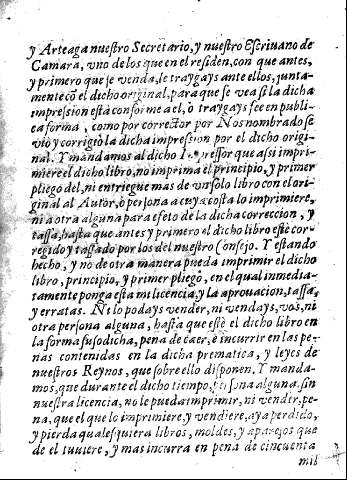 y Arteaga nuestro Secretario, y nuestro Escriuano de
Camara, vno de los que en el residen, con que antes,
y primero que se venda, le traygays ante ellos, junta-
mente cõ el dicho original, para que se vea si la dicha
impression està conforme a el, ò traygays fee en publi-
ca forma, como por corrector por Nos nombrado se
vio y corrigiò la dicha impression por el dicho origi-
nal. Y mandamos al dicho Impressor que assi impri-
miere el dicho libro, no imprima el principio, y primer
pliego del, ni entriegue mas de vn solo libro con el ori-
ginal al Autor, ò persona a cuya costa lo imprimiere,
ni a otra alguna para efeto de la dicha correccion, y
tassa, hasta que antes y primero el dicho libro estè cor-
regido y tassado por los del nuestro Consejo. Y estando
hecho, y no de otra manera pueda imprimir el dicho
libro, principio, y primer pliego, en el qual inmedia-
tamente ponga esta mi licencia, y la aprouacion, tassa,
y erratas. Ni lo podays vender, ni vendays, vos, ni
otra persona alguna, hasta que estè el dicho libro en
la forma susodicha, pena de caer, è incurrir en las pe-
nas contenidas en la dicha prematica, y leyes de
nuestros Reynos, que sobre ello disponen. Y manda-
mos, que durante el dicho tiempo, persona alguna, sin
nuestra licencia, no le pueda imprimir, ni vender, pe-
na, que el que lo imprimiere, y vendiere, aya perdido,
y pierda qualesquiera libros, moldes, y aparejos que
de el tuuiere, y mas incurra en pena de cincuenta
mil